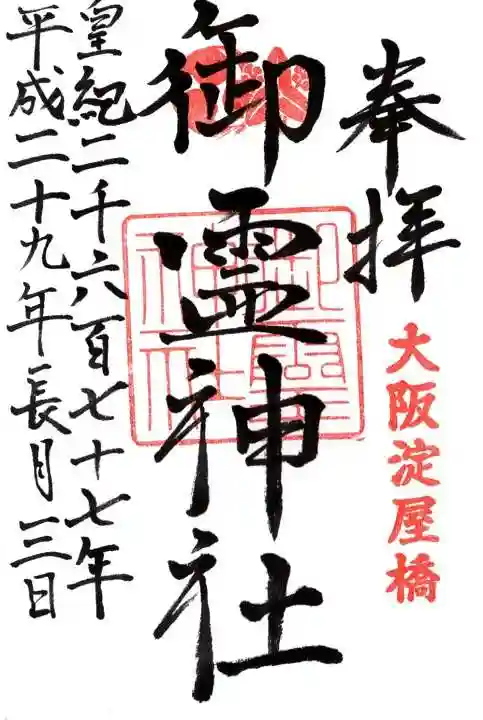 奉拝
大阪淀屋橋
御霊神社
御霊神社
皇紀二千六百七十七年
平成二十九年長月三日